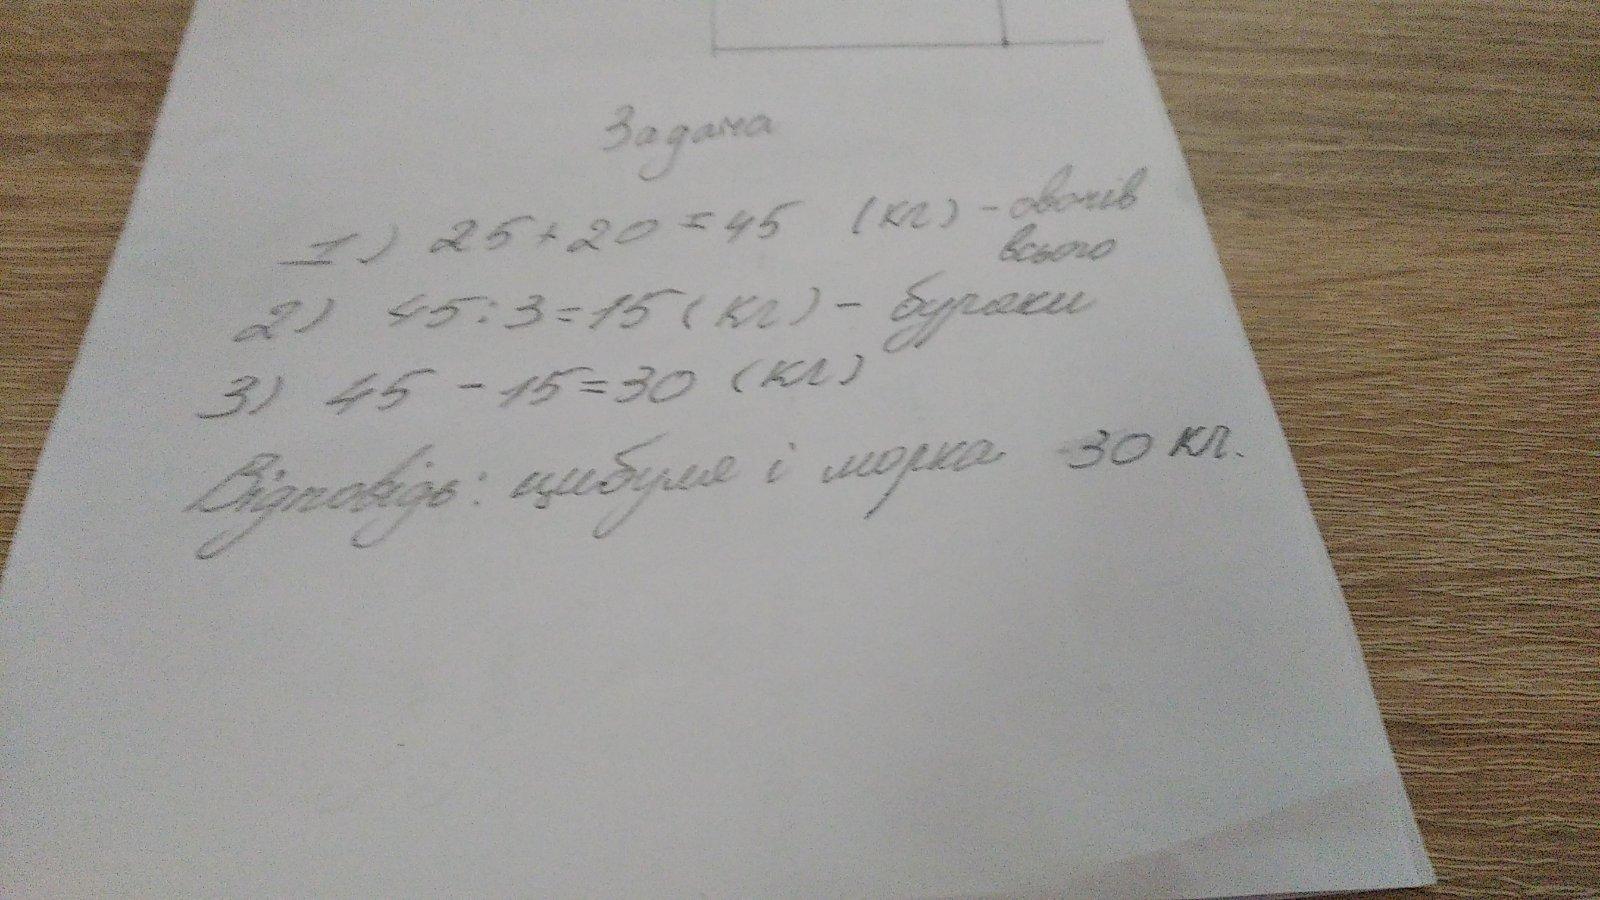 Задача
1) 25+20=45 (кг) - овочів
всього
2) 45:3=15 (кг) - буряки
3) 45-15=30 (кг)
Відповідь: цибуля і морква 30 кг.